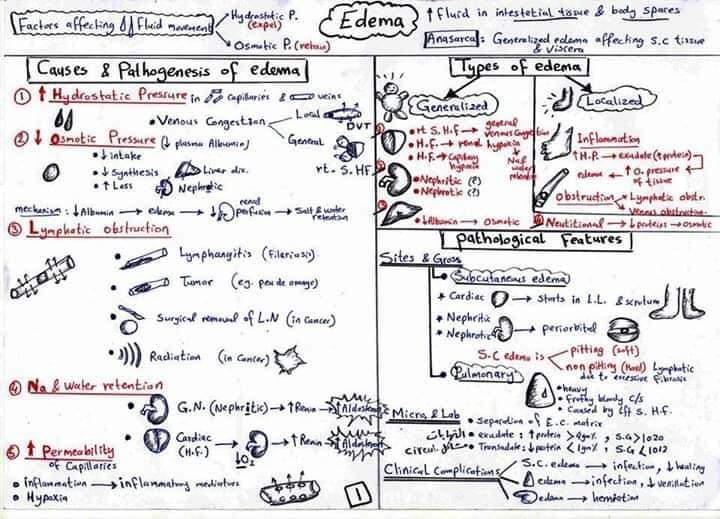 Factors affecting fluid movement
Hydrostatic P.
(expel)
Osmotic P. (retain)
Edema
↑ fluid in intestetial tissue & body spaces
Anasarca: Generalized edema affecting S.C tissue
& viscera
Causes & Pathogenesis of edema
① ↑ Hydrostatic Pressure in capillaries & veins
• Venous Congestion
Local
DVT
General
rt. S. HF
② ↓ Osmotic Pressure (↓ plasma Albumin)
• ↓ intake
• ↓ Synthesis Liver dis.
• ↑ Loss Nephrotic
mechanism: ↓ Albumin → edema → ↓ renal perfusion → Salt & water retention
③ Lymphatic obstruction
• Lymphangitis (filariasis)
• Tumor (e.g. peu de orange)
• Surgical removal of L.N (in Cancer)
• Radiation (in Cancer)
④ Na & Water retention
• G.N. (Nephritic) → ↑ Renin → ↑ Aldosterone
• Cardiac (H.f.) → ↑ Renin → ↑ Aldosterone
↓O₂
⑤ ↑ Permeability
of Capillaries
• inflammation → inflammatory mediators
• Hypoxia
1
Types of edema
Generalized
① • rt S.H.F → general venous congestion
• H.F. → renal hypoxia → Na & water retention
• H.F → Capillary hypoxia
② • Nephritic (?)
• Nephrotic (?)
③ • ↓ Albumin → Osmotic
Localized
Inflammation
↑ H.P. → exudate (↑ protein)
edema ← ↑ O. pressure of tissue
Obstruction → Lymphatic obstr.
Venous obstruction
④ Neutitional → ↓ proteins → Osmotic
Pathological Features
Sites & Gross
• Subcutaneous edema
* Cardiac → Starts in L.L. & scrotum
* Nephritic
* Nephrotic → periorbital
S.C edema is
pitting (soft)
non pitting (Hard) Lymphatic
due to excessive fibrosis
• Pulmonary
• heavy
• frothy bloody c/s
• Caused by lft S. H.F.
Micro. & Lab
• Separation of E.C. matrix
• exudate: ↑ protein > 4gm%, S.G > 1020
• Transudate: ↓ protein < 1gm%, S.G < 1012
Clinical Complications
S.C. edema → infection, ↓ healing
edema → infection, ↓ ventilation
edema → herniation